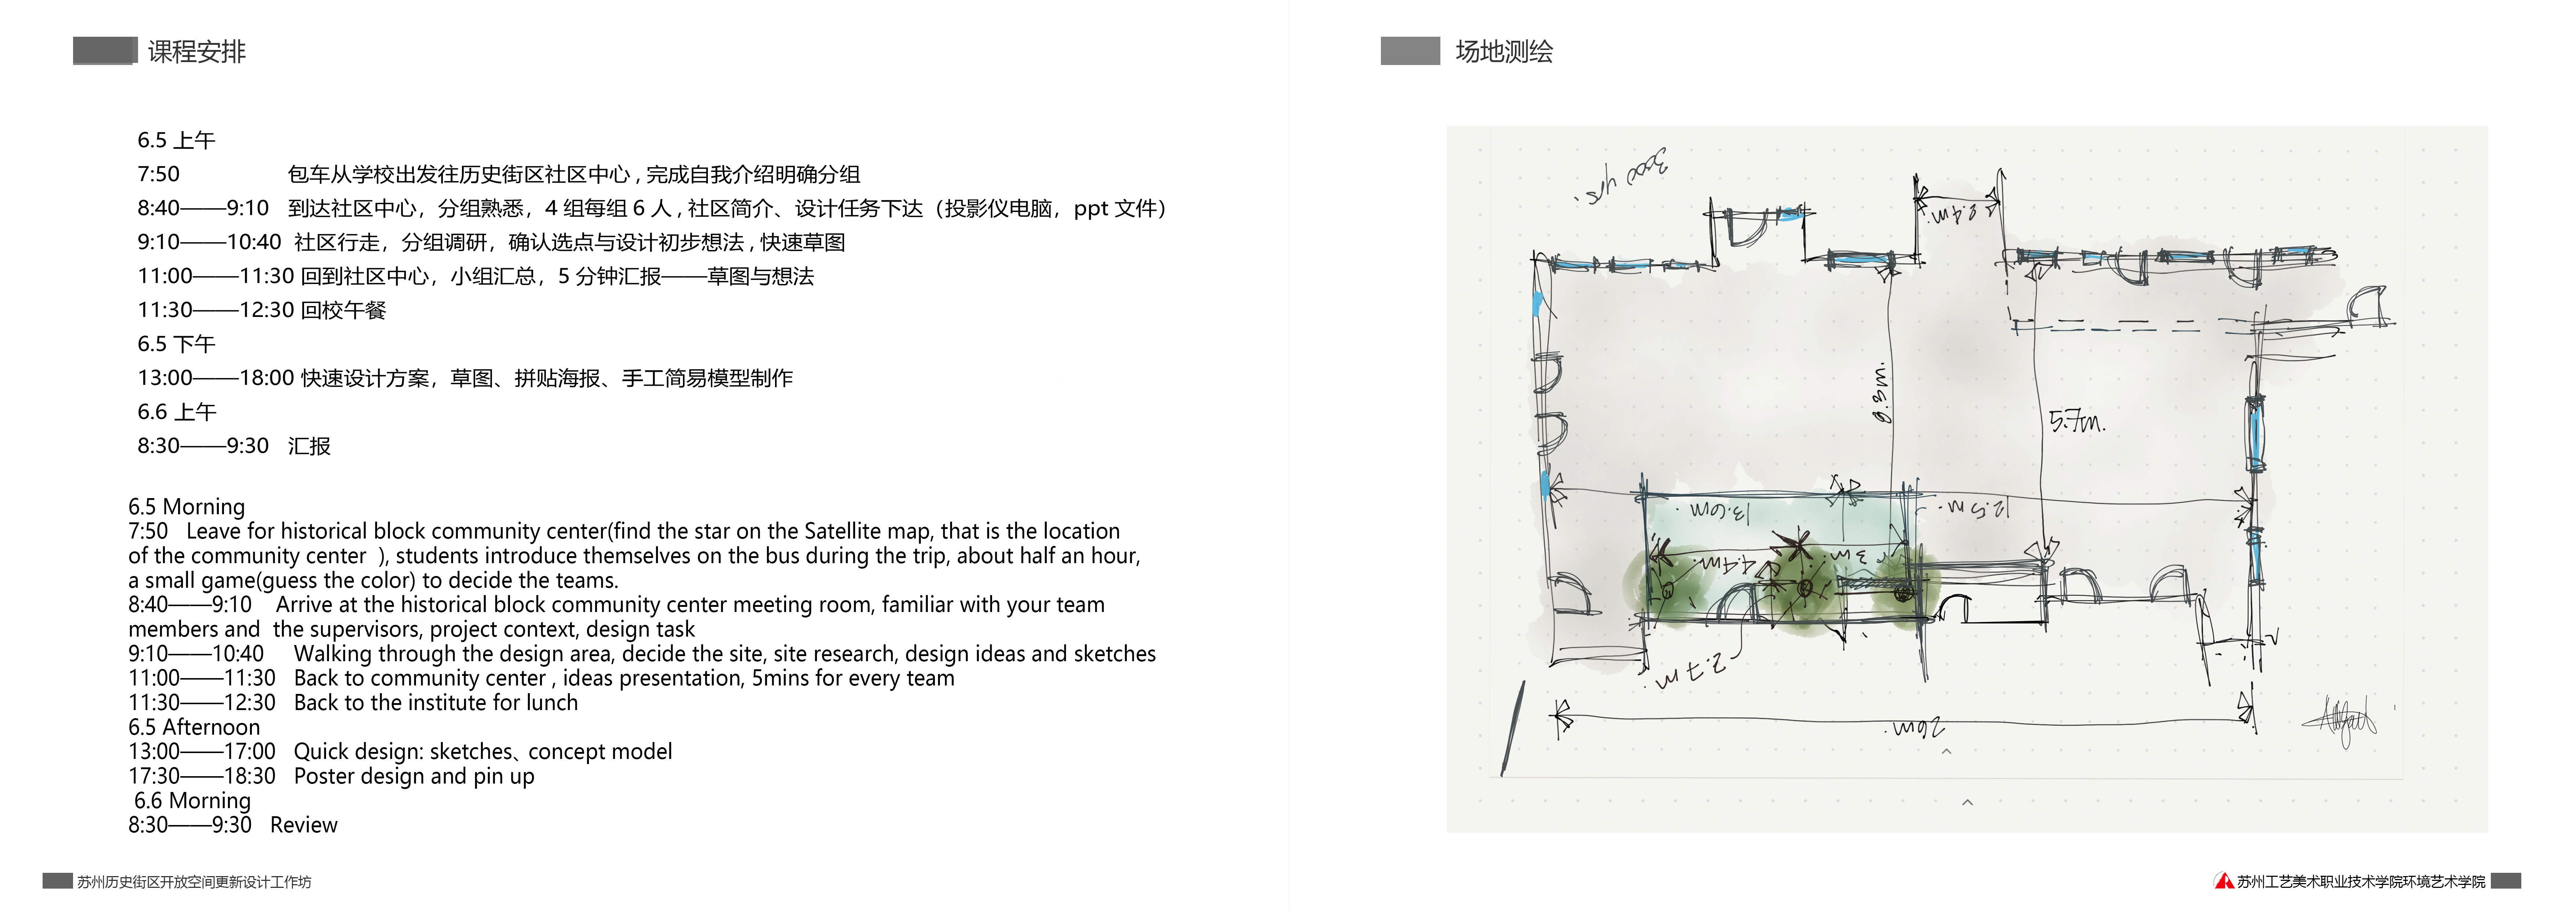 课程安排
6.5 上午
7:50 包车从学校出发往历史街区社区中心 , 完成自我介绍明确分组
8:40——9:10 到达社区中心，分组熟悉，4 组每组 6 人 , 社区简介、设计任务下达（投影仪电脑，ppt 文件）
9:10——10:40 社区行走，分组调研，确认选点与设计初步想法 , 快速草图
11:00——11:30 回到社区中心，小组汇总，5 分钟汇报——草图与想法
11:30——12:30 回校午餐
6.5 下午
13:00——18:00 快速设计方案，草图、拼贴海报、手工简易模型制作
6.6 上午
8:30——9:30 汇报
6.5 Morning
7:50 Leave for historical block community center(find the star on the Satellite map, that is the location
of the community center ), students introduce themselves on the bus during the trip, about half an hour,
a small game(guess the color) to decide the teams.
8:40——9:10 Arrive at the historical block community center meeting room, familiar with your team
members and the supervisors, project context, design task
9:10——10:40 Walking through the design area, decide the site, site research, design ideas and sketches
11:00——11:30 Back to community center , ideas presentation, 5mins for every team
11:30——12:30 Back to the institute for lunch
6.5 Afternoon
13:00——17:00 Quick design: sketches、concept model
17:30——18:30 Poster design and pin up
6.6 Morning
8:30——9:30 Review
苏州历史街区开放空间更新设计工作坊
场地测绘
2.4m.
8.3m.
5.7m.
13.6m.
12.5m.
4.4m.
3m.
2.7m.
26m.
苏州工艺美术职业技术学院环境艺术学院